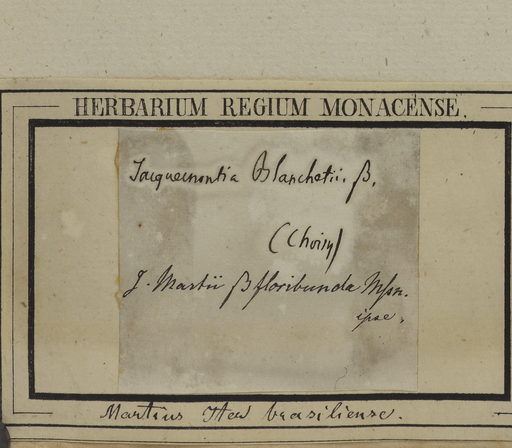 HERBARIUM REGIUM MONACENSE.
Jacquemontia Blanchetii. β.
(Choisy)
J. Martii β floribunda Mssn.
ipse.
Martius Iter brasiliense.